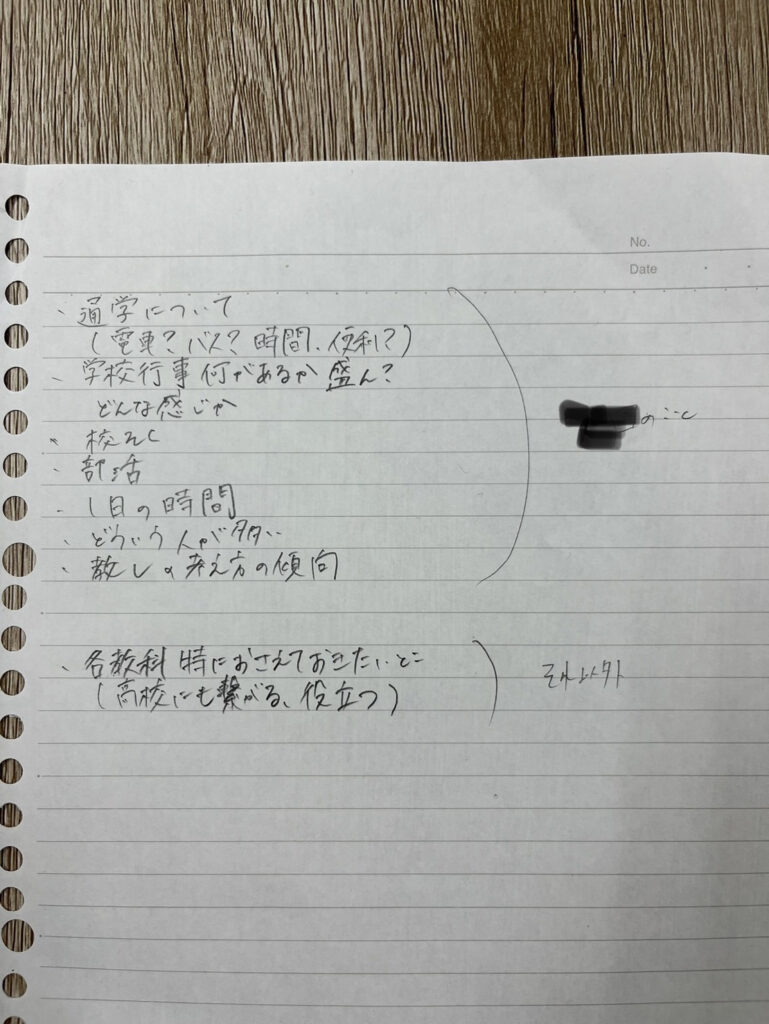 No.
Date
・通学について
(電車?バス?時間、便利?)
・学校行事 何があるか 盛ん?
どんな感じか
・校そく
・部活
・1日の時間
・どういう人が多い
・教しの考え方の傾向
のこと
・各教科 特におさえておきたいとこ
(高校にも繋がる、役立つ)
それ以外